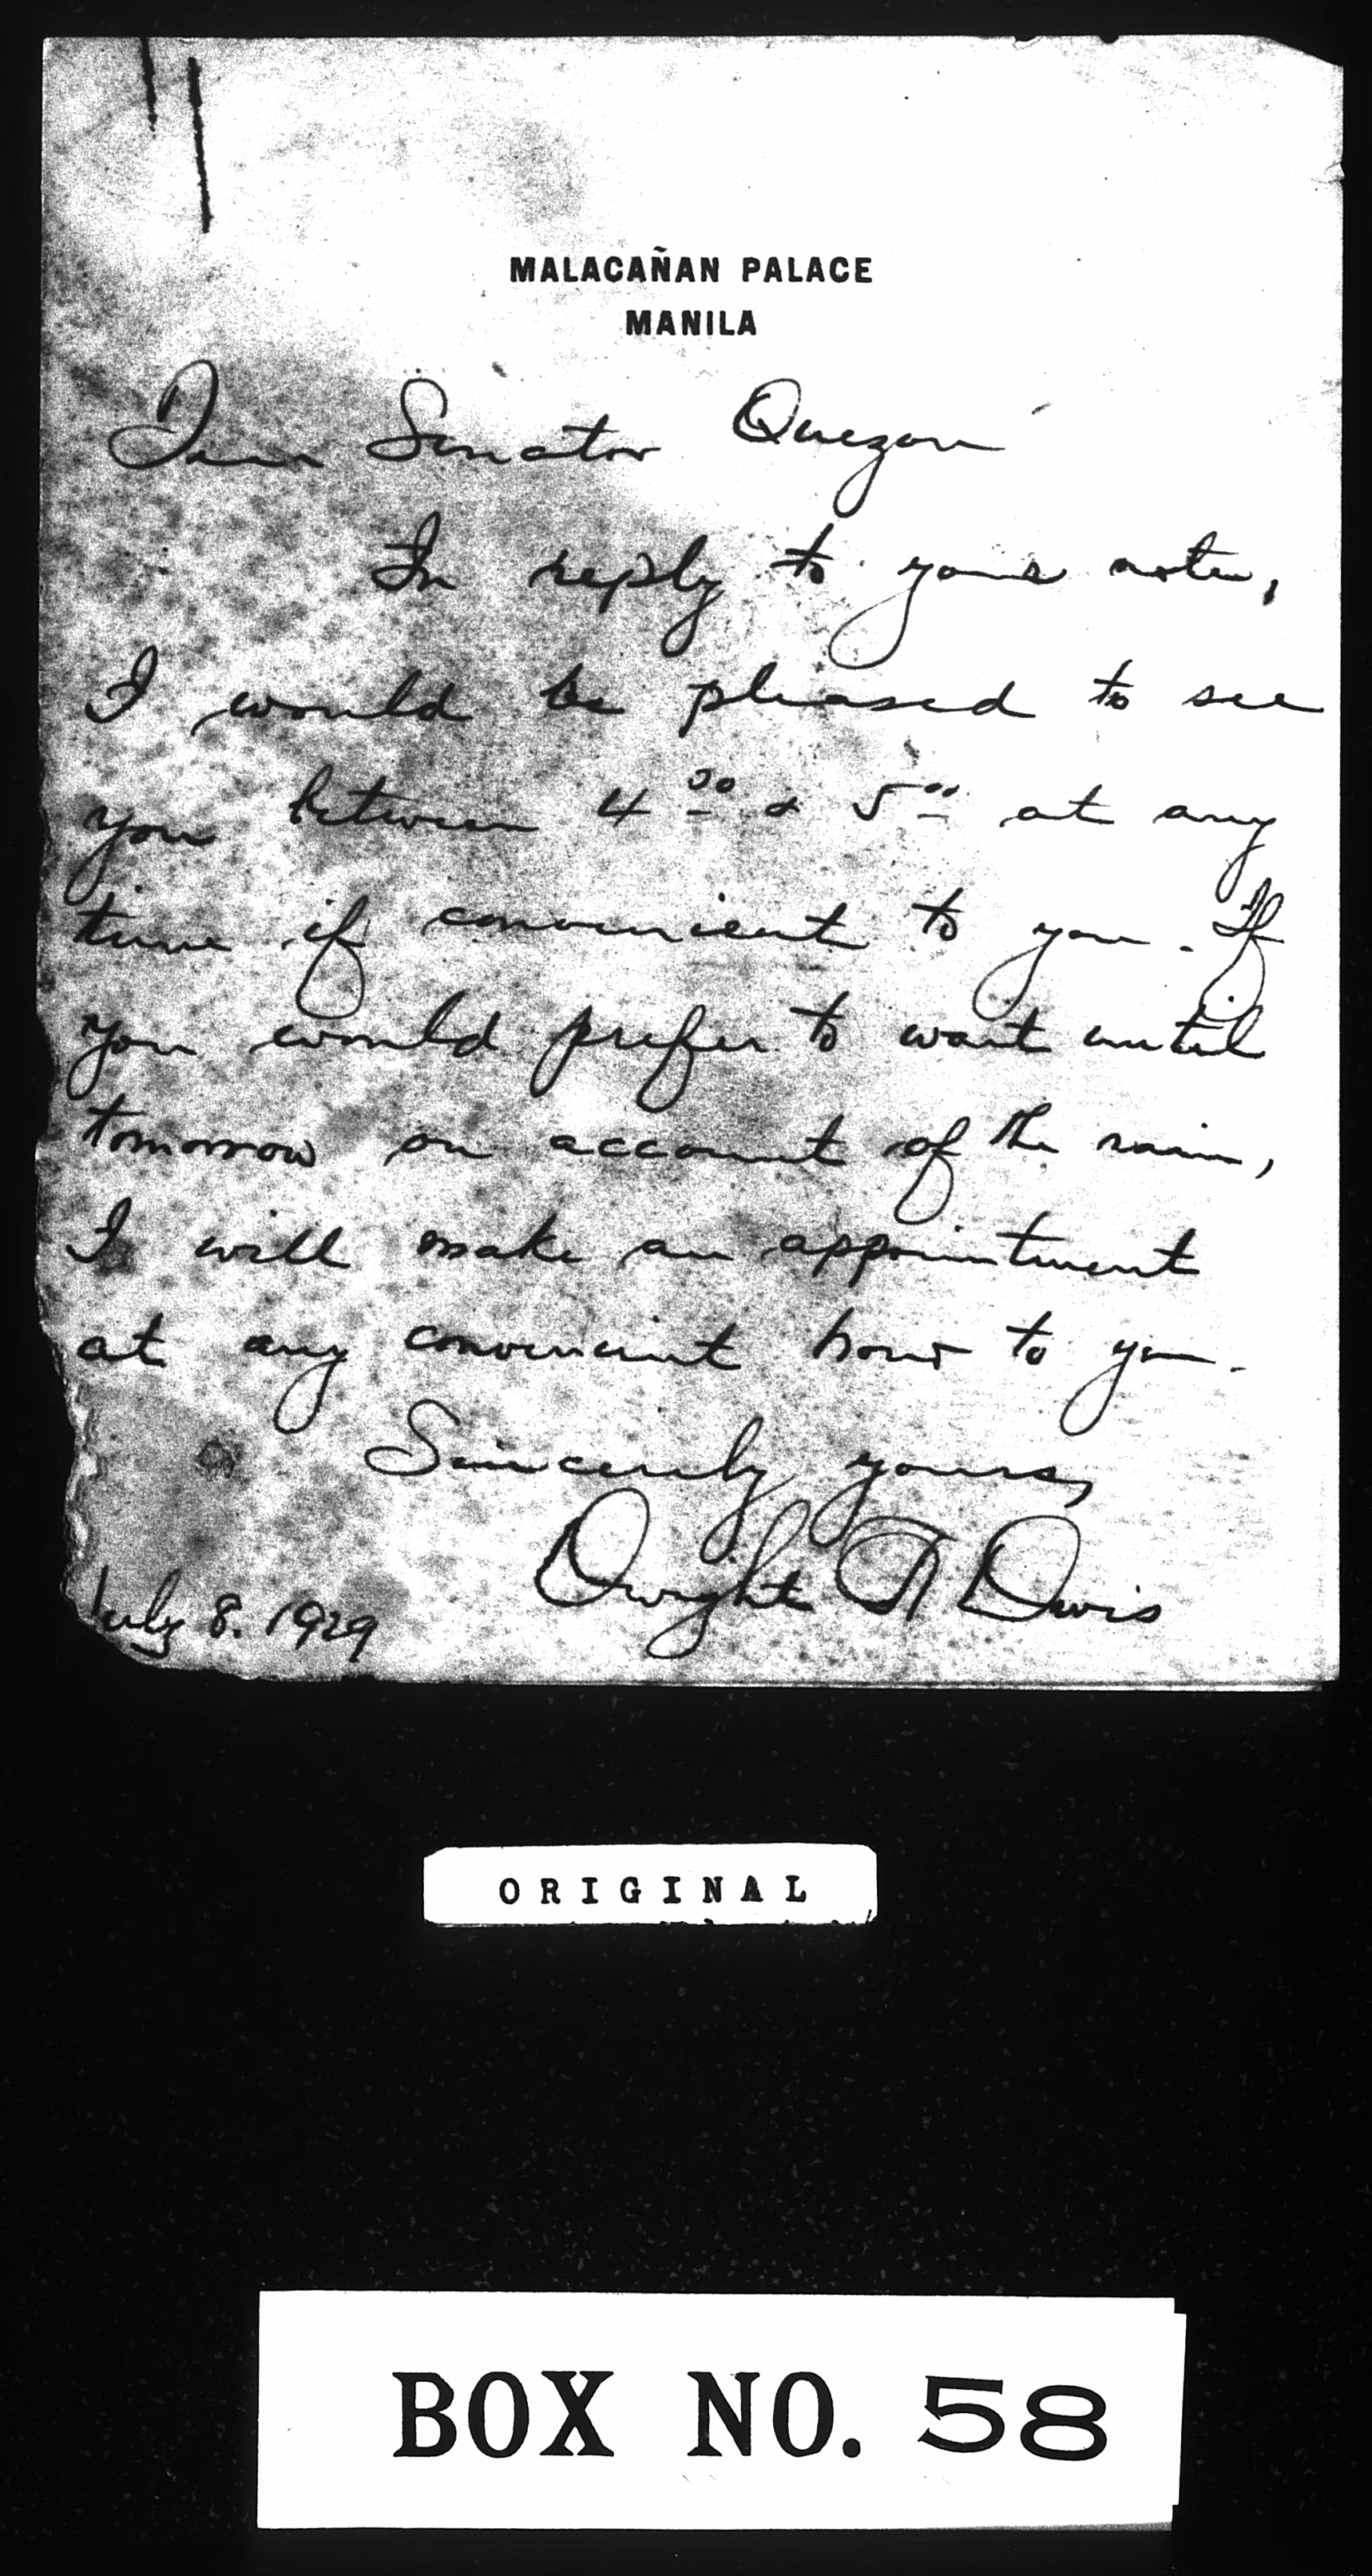 MALACAÑAN PALACE
MANILA
Dear Senator Quezon
In reply to your note,
I would be pleased to see
you between 4 30 & 5 00 at any
time if convenient to you. If
you would prefer to wait until
tomorrow on account of the rain,
I will make an appointment
at any convenient hour to you.
Sincerely yours,
Dwight F Davis
July 8. 1929
ORIGINAL
BOX NO. 58